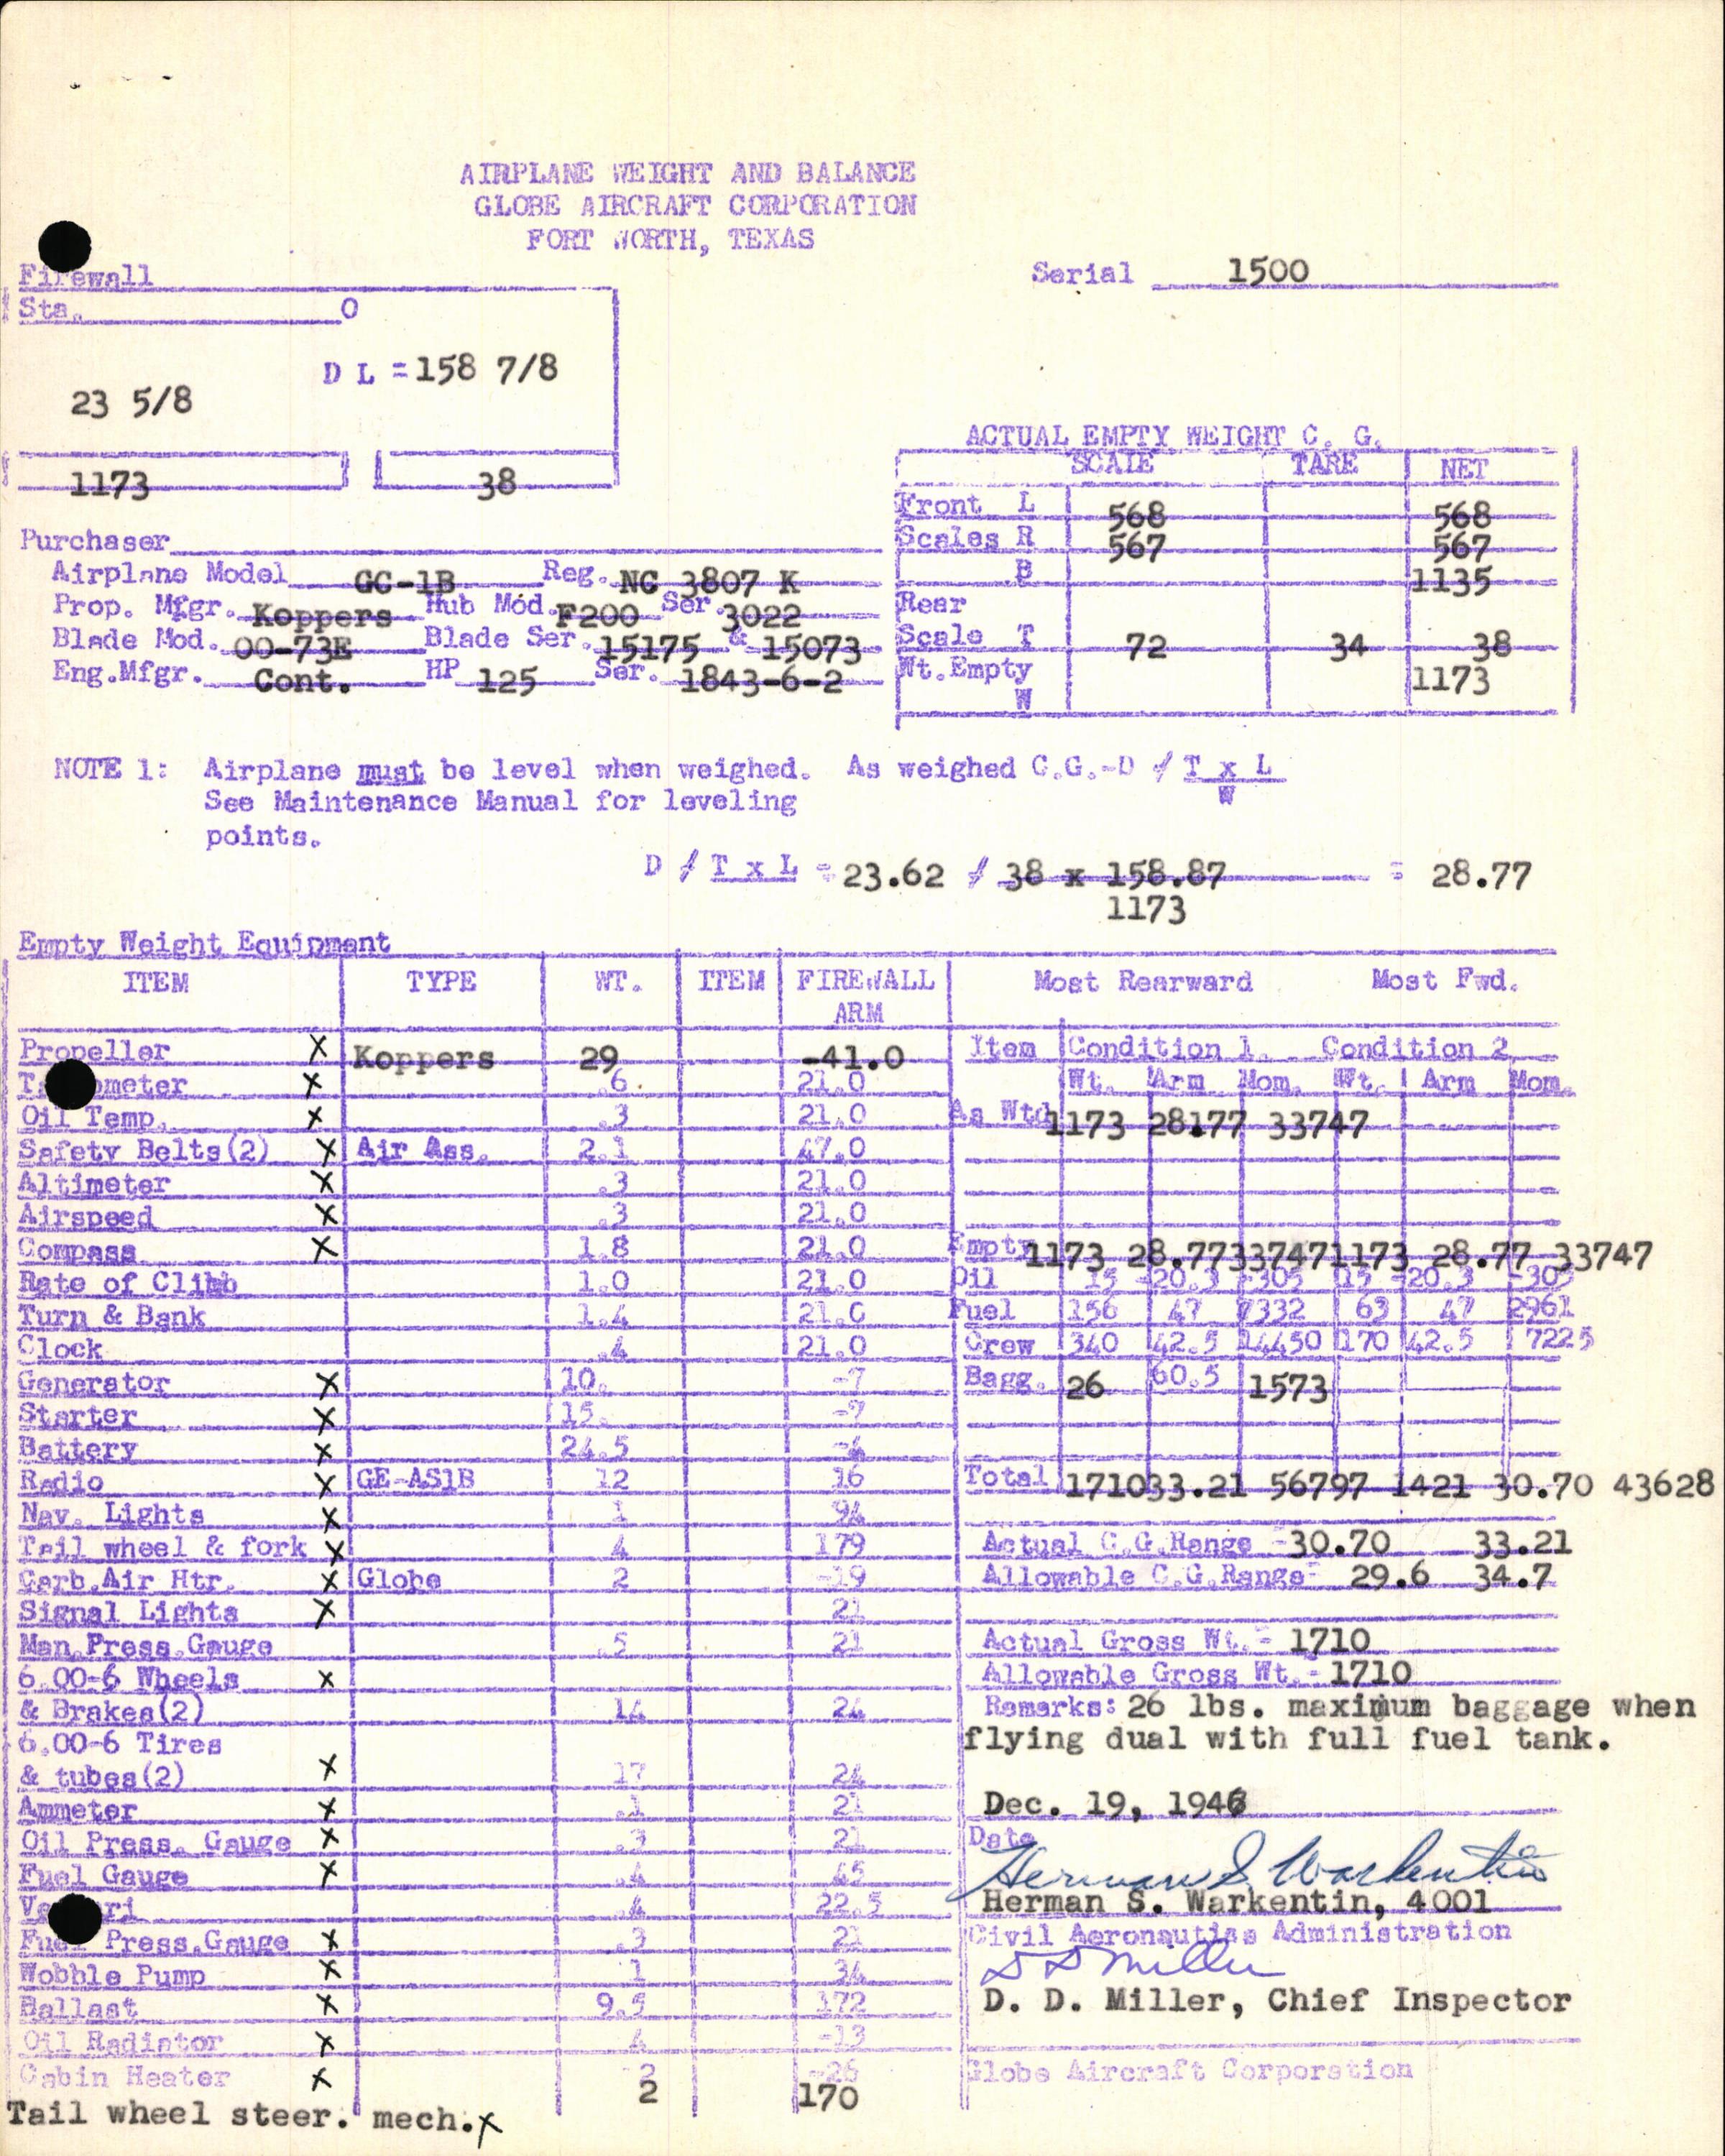 AIRPLANE WEIGHT AND BALANCE
GLOBE AIRCRAFT CORPORATION
FORT WORTH, TEXAS
Firewall
Serial 1500
Sta. 0
D L = 158 7/8
23 5/8
1173 38
ACTUAL EMPTY WEIGHT C. G.
SCALE TARE NET
Front L 568 568
Scales R 567 567
B 1135
Rear
Scale T 72 34 38
Wt.Empty 1173
W
Purchaser
Airplane Model GC-1B Reg. NC 3807 K
Prop. Mfgr. Koppers Hub Mod. F200 Ser. 3022
Blade Mod. 00-73E Blade Ser. 15175 & 15073
Eng.Mfgr. Cont. HP 125 Ser. 1843-6-2
NOTE 1: Airplane must be level when weighed. As weighed C.G.-D / T x L
W
See Maintenance Manual for leveling
points.
D / T x L = 23.62 / 38 x 158.87 = 28.77
1173
Empty Weight Equipment
ITEM TYPE WT. ITEM FIREWALL
ARM
Propeller X Koppers 29 -41.0
Tachometer X .6 21.0
Oil Temp. X .3 21.0
Safety Belts(2) X Air Ass. 2.1 47.0
Altimeter X .3 21.0
Airspeed X .3 21.0
Compass X 1.8 21.0
Rate of Climb 1.0 21.0
Turn & Bank 1.4 21.0
Clock .4 21.0
Generator X 10. -7
Starter X 15. -7
Battery X 24.5 -4
Radio X GE-AS1B 12 16
Nav. Lights X 1 94
Tail wheel & fork X 4 179
Carb.Air Htr. X Globe 2 -19
Signal Lights X 21
Man.Press.Gauge .5 21
6.00-6 Wheels X
& Brakes(2) 14 24
6.00-6 Tires
& tubes(2) X 17 24
Ammeter X .1 21
Oil Press. Gauge X .3 21
Fuel Gauge X .4 45
Venturi .4 22.5
Fuel Press.Gauge X .3 21
Wobble Pump X 1 34
Ballast X 9.5 172
Oil Radiator X 4 -13
Cabin Heater X 2 -26
Tail wheel steer. mech. X 2 170
Most Rearward Most Fwd.
Item Condition 1. Condition 2
Wt. Arm Mom. Wt. Arm Mom.
As Wtd 1173 28.77 33747
Empty 1173 28.77 33747 1173 28.77 33747
Oil 15 -20.3 -305 15 -20.3 -305
Fuel 156 47 7332 63 47 2961
Crew 340 42.5 14450 170 42.5 7225
Bagg. 26 60.5 1573
Total 1710 33.21 56797 1421 30.70 43628
Actual C.G.Range = 30.70 33.21
Allowable C.G.Range= 29.6 34.7
Actual Gross Wt.= 1710
Allowable Gross Wt.= 1710
Remarks: 26 lbs. maximum baggage when
flying dual with full fuel tank.
Dec. 19, 1946
Date
Herman S. Warkentin
Herman S. Warkentin, 4001
Civil Aeronautics Administration
D D Miller
D. D. Miller, Chief Inspector
Globe Aircraft Corporation